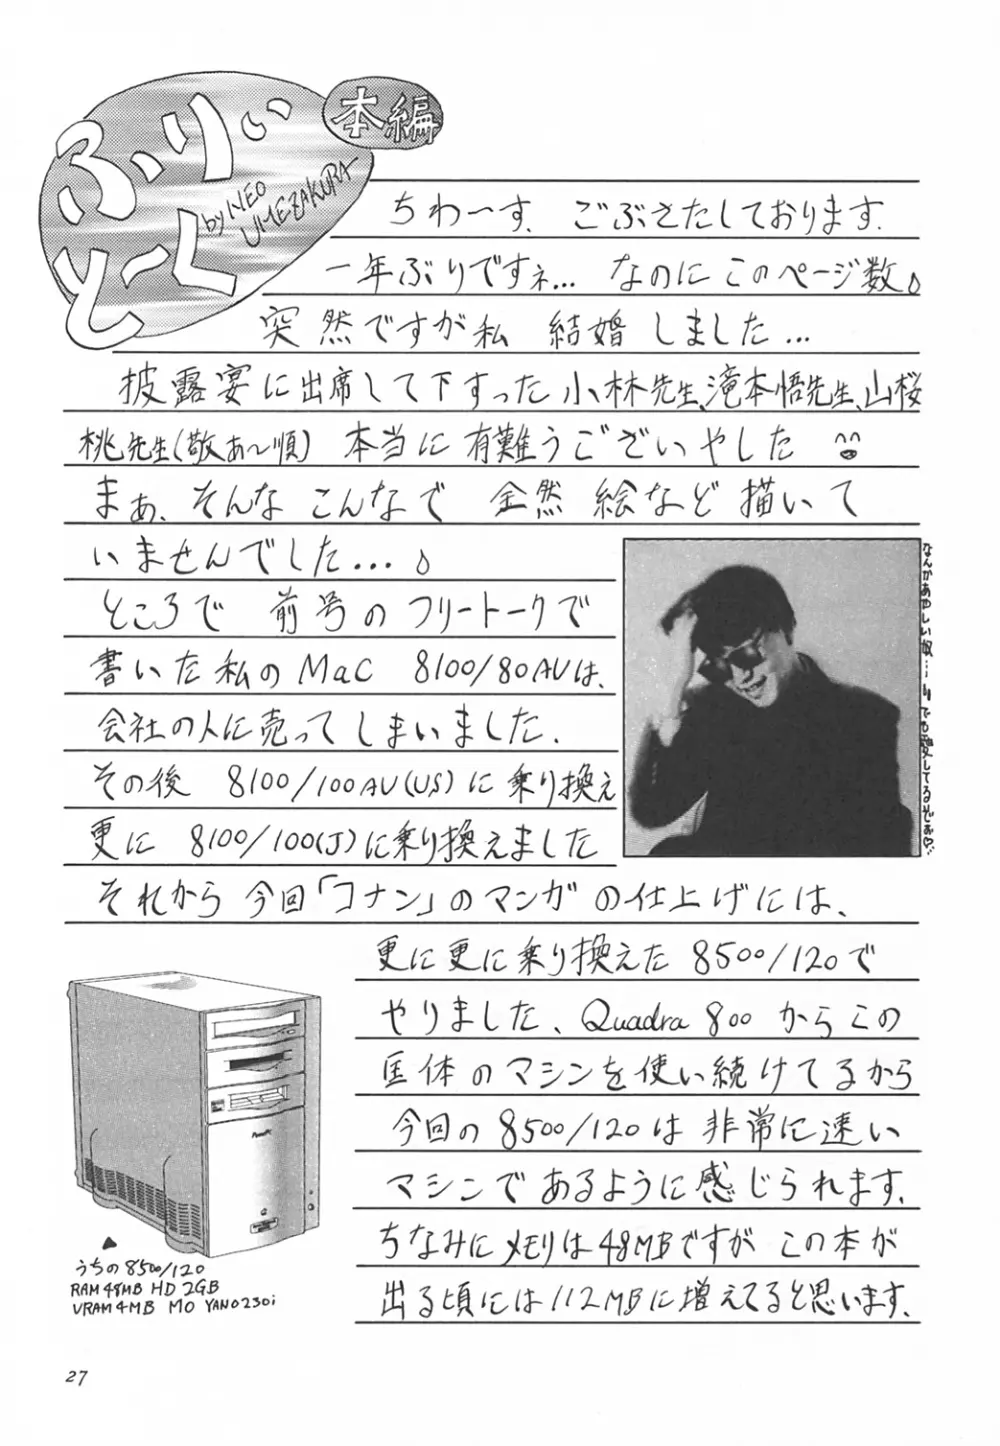 ふりぃ
とーく
by NEO
UMEZAKURA
本編
ちわ〜す、ごぶさたしております.
一年ぶりですネ… なのにこのページ数。
突然ですが私 結婚しました…
披露宴に出席して下すった小林先生、滝本悟先生、山桜
桃先生(敬あ〜順) 本当に有難うございやした
まぁ、そんなこんなで 全然 絵など描いて
いませんでした…。
ところで 前号のフリートークで
書いた私のMaC 8100/80AVは、
会社の人に売ってしまいました.
その後 8100/100AV(US)に乗り換え
更に 8100/100(J)に乗り換えました
なんかあやしい奴…!! でも愛してるぞぉ♡…
それから今回「コナン」のマンガの仕上げには、
更に更に乗り換えた 8500/120で
やりました、Quadra 800 からこの
匡体のマシンを使い続けてるから
今回の8500/120は非常に速い
マシンであるように感じられます.
ちなみにメモリは48MBですが この本が
出る頃には112MBに増えてると思います.
うちの8500/120
RAM48MB HD 2GB
VRAM4MB MO YANO230i
27